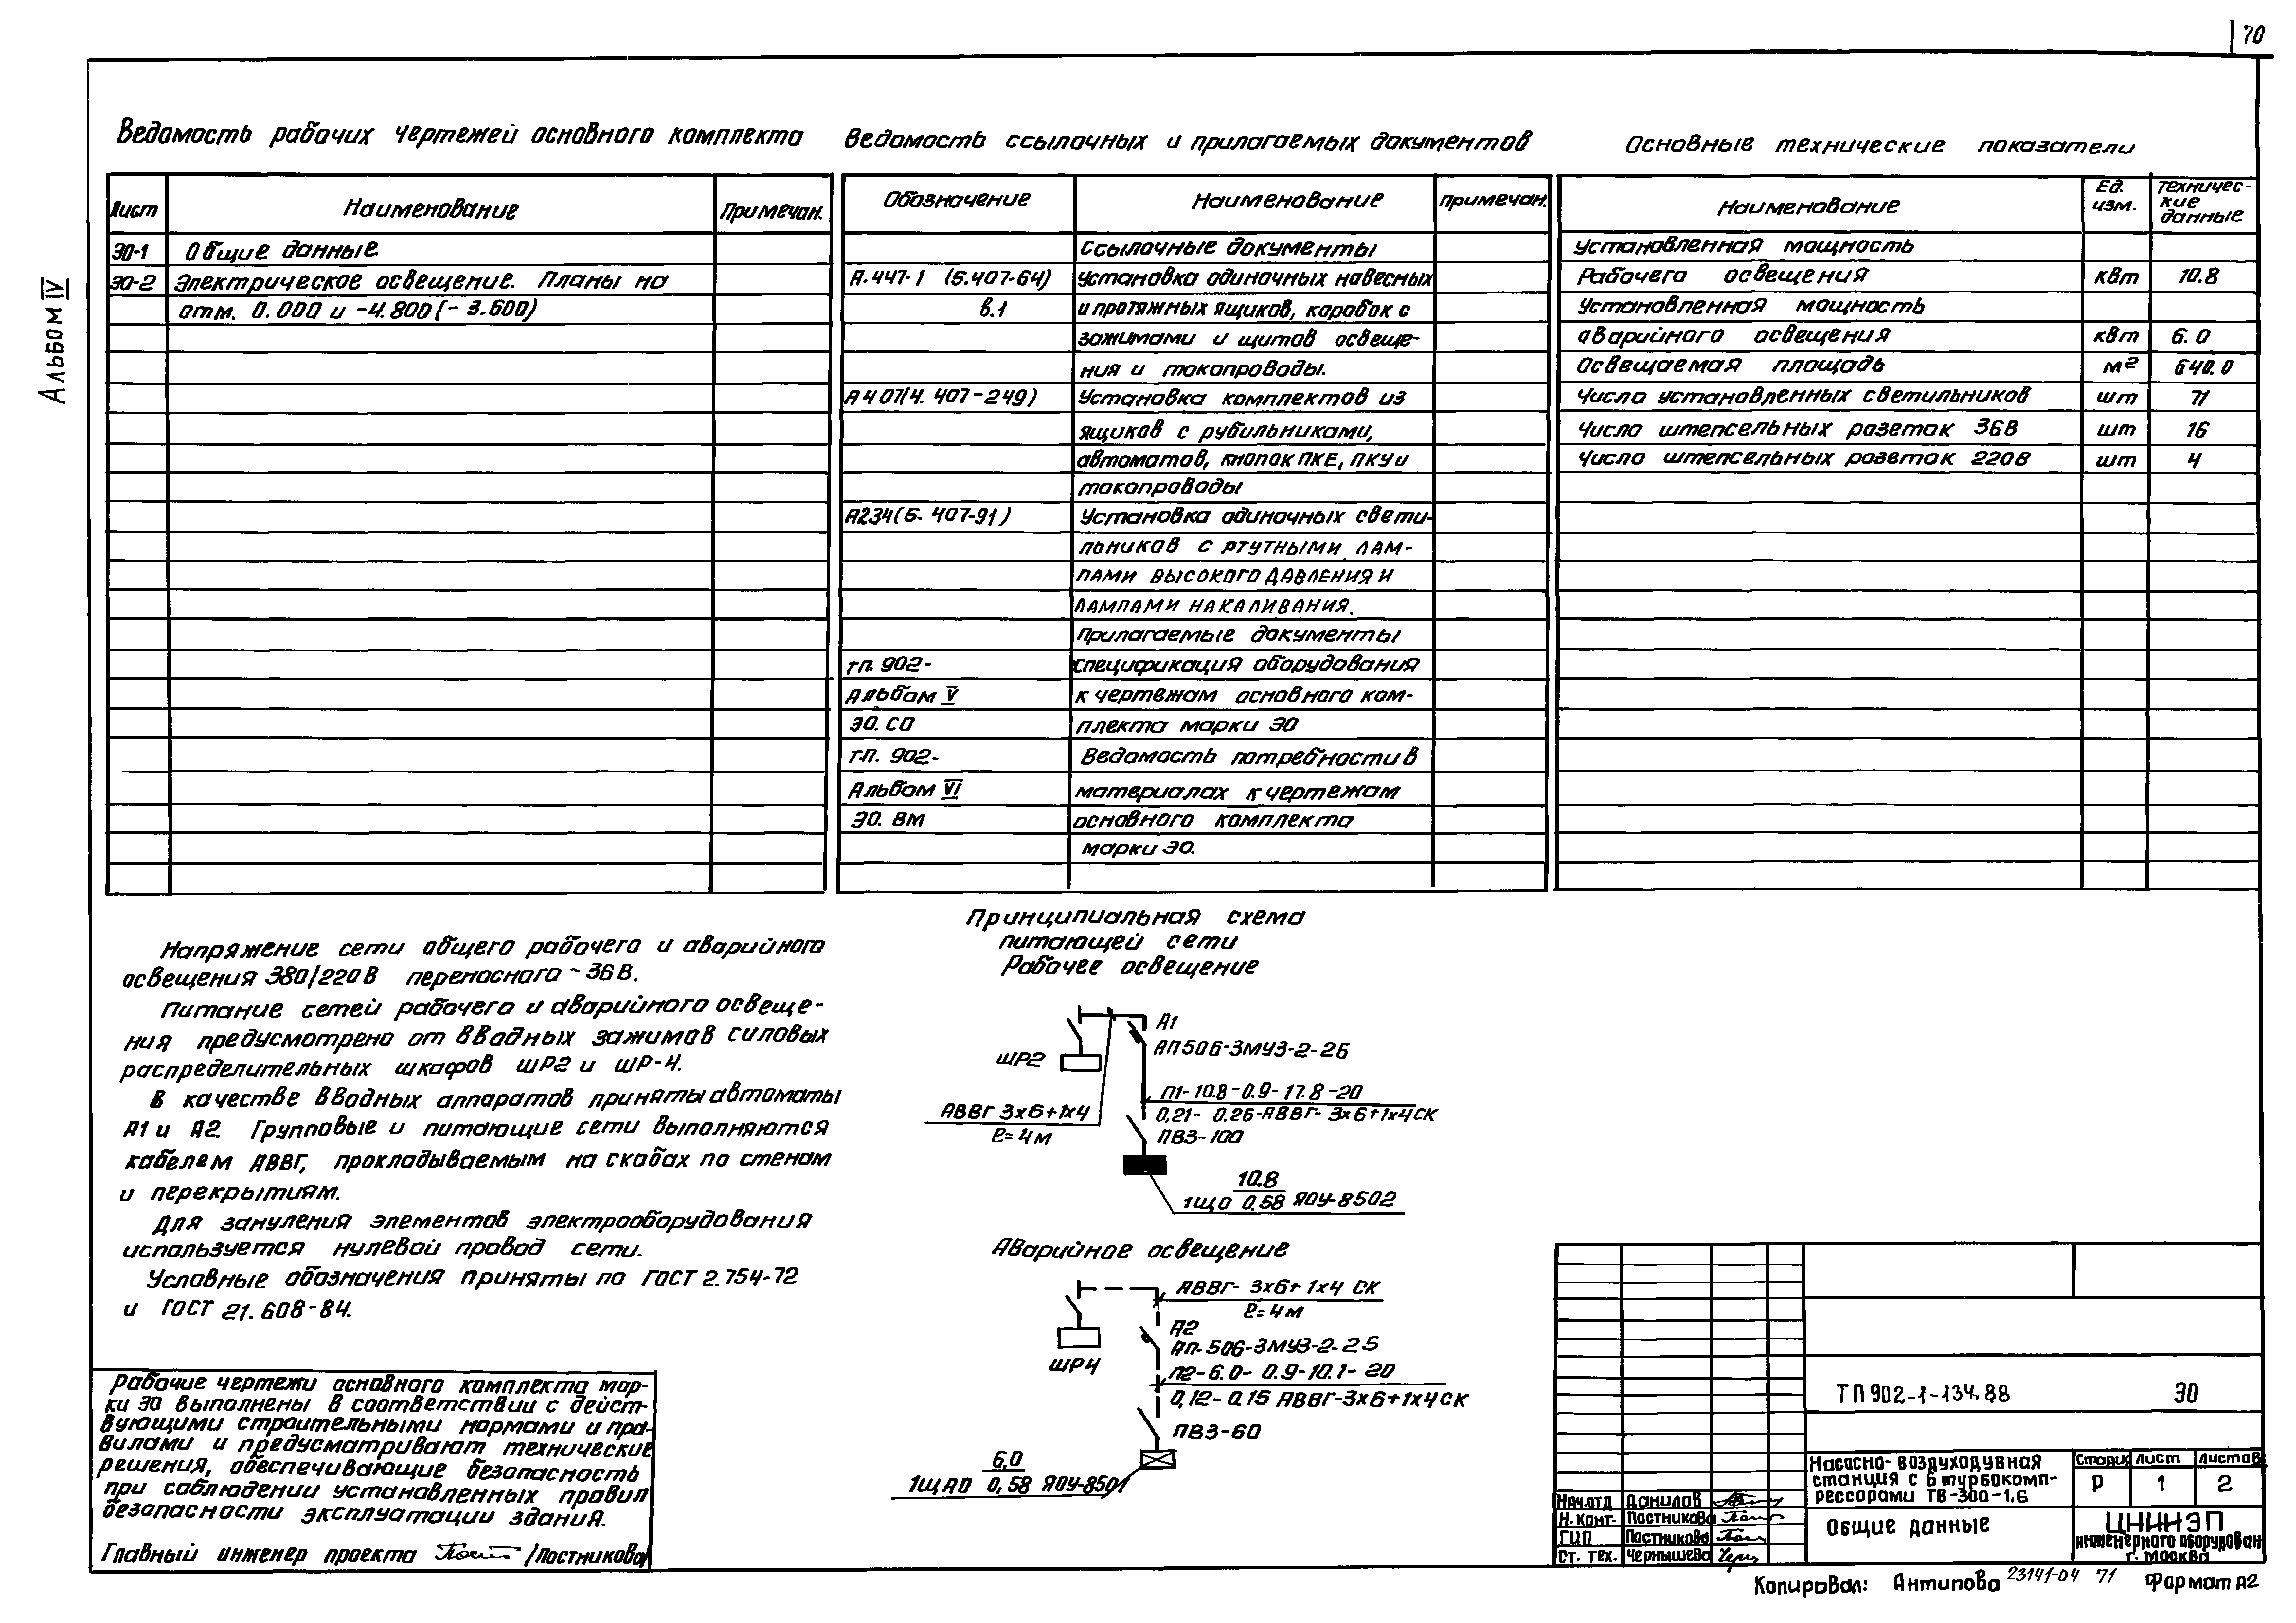 70
Альбом IV
Ведомость рабочих чертежей основного комплекта
Лист Наименование Примечан.
ЭО-1 Общие данные.
ЭО-2 Электрическое освещение. Планы на
отм. 0.000 и -4.800 (- 3.600)
Ведомость ссылочных и прилагаемых документов
Обозначение Наименование Примечан.
Ссылочные документы
А.447-1 (5.407-64) Установка одиночных навесных
в.1 и протяжных ящиков, коробок с
зажимами и щитов освеще-
ния и токопроводы.
А407(4.407-249) Установка комплектов из
ящиков с рубильниками,
автоматов, кнопок ПКЕ, ПКУ и
токопроводы
А234(5.407-91) Установка одиночных свети-
льников с ртутными лам-
пами высокого давления и
лампами накаливания.
Прилагаемые документы
т.п. 902- Спецификация оборудования
Альбом V к чертежам основного ком-
ЭО.СО плекта марки ЭО
т.п. 902- Ведомость потребности в
Альбом VI материалах к чертежам
ЭО. ВМ основного комплекта
марки ЭО.
Основные технические показатели
Наименование Ед. изм. Техничес-кие данные
Установленная мощность
Рабочего освещения квт 10.8
Установленная мощность
аварийного освещения квт 6.0
Освещаемая площадь м2 640.0
Число установленных светильников шт 71
Число штепсельных розеток 36В шт 16
Число штепсельных розеток 220В шт 4
Напряжение сети общего рабочего и аварийного
освещения 380/220В переносного ~36В.
Питание сетей рабочего и аварийного освеще-
ния предусмотрено от вводных зажимов силовых
распределительных шкафов ШР2 и ШР-4.
В качестве вводных аппаратов приняты автоматы
А1 и А2. Групповые и питающие сети выполняются
кабелем АВВГ, прокладываемым на скобах по стенам
и перекрытиям.
Для зануления элементов электрооборудования
используется нулевой провод сети.
Условные обозначения приняты по ГОСТ 2.754-72
и ГОСТ 21.608-84.
Рабочие чертежи основного комплекта мар-
ки ЭО выполнены в соответствии с дейст-
вующими строительными нормами и пра-
вилами и предусматривают технические
решения, обеспечивающие безопасность
при соблюдении установленных правил
безопасности эксплуатации здания.
Главный инженер проекта /Постникова/
Принципиальная схема
питающей сети
Рабочее освещение
А1
АП50Б-3МУЗ-2-26
ШР2
П1-10.8-0.9-17.8-20
0,21- 0.26-АВВГ- 3х6+1х4СК
АВВГ 3х6+1х4
ℓ=4м
ПВЗ-100
10.8
1ЩО 0.58 ЯОУ-8502
Аварийное освещение
АВВГ- 3х6+ 1х4 СК
ℓ=4м
А2
АП-50Б-3МУЗ-2-25
ШР4
П2-6.0- 0.9-10.1- 20
0,12- 0.15 АВВГ-3х6+1х4СК
ПВЗ-60
6,0
1ЩАО 0,58 ЯОУ-8501
ТП 902-1-134.88 ЭО
Насосно-воздуходувная
станция с 6 турбокомп-
рессорами ТВ-300-1,6
Стадия Лист Листов
Р 1 2
Нач.отд Данилов
Н.конт. Постникова
ГИП Постникова
Ст. тех. Чернышева
Общие данные
ЦНИИЭП
инженерного оборудован
г. Москва
Копировал: Антипова 23141-04 71 Формат А2